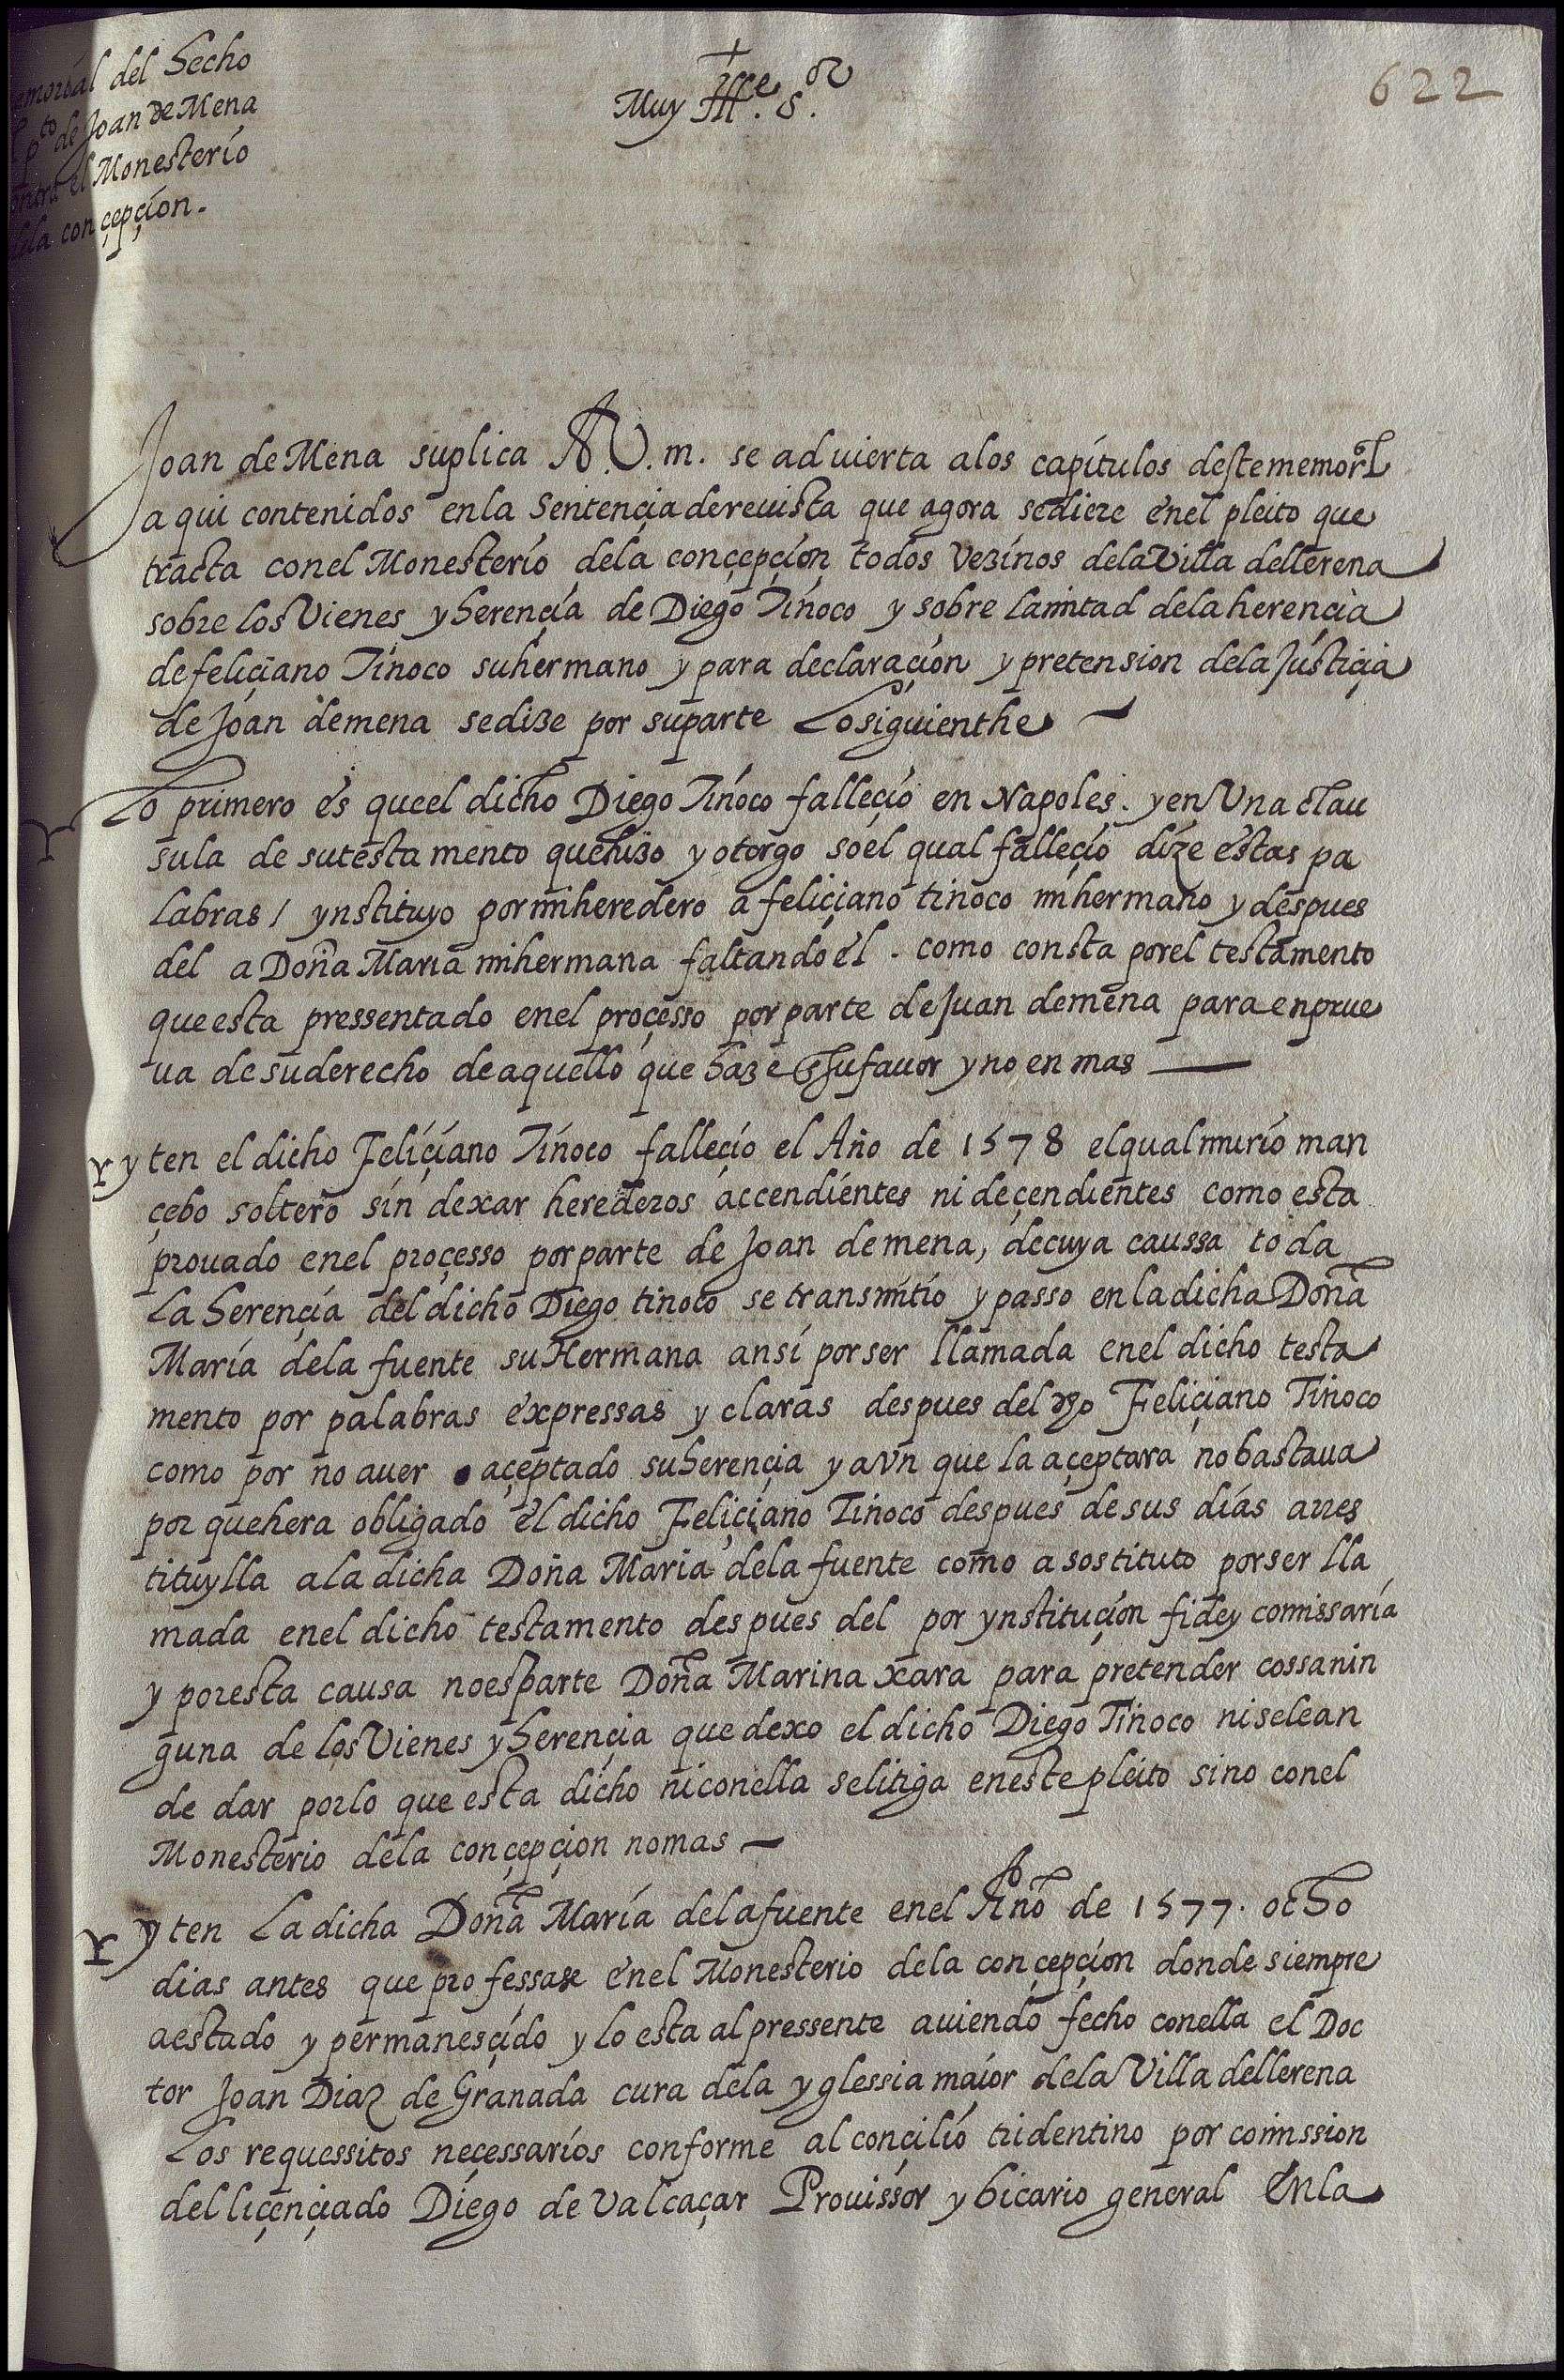 emorial del hecho
pto de Joan de Mena
ontra el Monesterio
dela conçepçion.
Muy Ille. sor
622
Joan de Mena suplica A V.m. se advierta alos capítulos deste memorl
aqui contenidos enla Sentençia de reuista que agora se diere enel pleito que
tracta conel Monesterio dela conçepçion todos vezinos dela Villa dellerena
sobre los Vienes y herençia de Diego Tinoco y sobre lamitad dela herençia
de feliçiano Tinoco su hermano y para declaraçion y pretension dela Justiçia
de Joan demena se dize por su parte Lo siguienthe
Lo primero es que el dicho Diego Tinoco falleçio en Napoles. y en Una clau
sula de su testamento que hizo y otorgo so el qual falleçio dize estas pa
labras / ynstituyo por mi heredero a feliçiano tinoco mi hermano y despues
del a Doña Maria mi hermana faltando el. como consta por el testamento
que esta pressentado enel proçesso por parte de Juan demena para en prue
ua de su derecho de aquello que haze en su fauor y no en mas
yten el dicho Feliçiano Tinoco falleçio el Año de 1578 el qual murio man
çebo soltero sin dexar herederos accendientes ni deçendientes como esta
prouado enel proçesso por parte de Joan demena, de cuya caussa toda
La herençia del dicho Diego tinoco se transmitio y passo en la dicha Doña
María dela fuente su Hermana ansí por ser llamada enel dicho testa
mento por palabras expressas y claras despues del dho Feliçiano Tinoco
como por no auer açeptado su herençia y avn que la açeptara no bastaua
por que hera obligado el dicho Feliçiano Tinoco despues de sus días arres
tituylla ala dicha Doña Maria dela fuente como a sostituto por ser lla
mada enel dicho testamento despues del por ynstituçion fidey comissaría
y por esta causa no es parte Doña Marina xara para pretender cossa nin
guna de los Vienes y herençia que dexo el dicho Diego Tinoco ni se le an
de dar por lo que esta dicho ni con ella se litiga en este pleito sino conel
Monesterio dela conçepçion no mas
yten La dicha Doña María dela fuente enel Año de 1577. ocho
dias antes que professase enel Monesterio dela conçepçion donde siempre
a estado y permanesçido y lo esta al pressente auiendo fecho con ella el Doc
tor Joan Diaz de Granada cura dela yglessia maior dela Villa dellerena
Los requessitos neçessarios conforme al conçilio tridentino por comission
del liçençiado Diego de Valcaçar Prouissor y bicario general En la